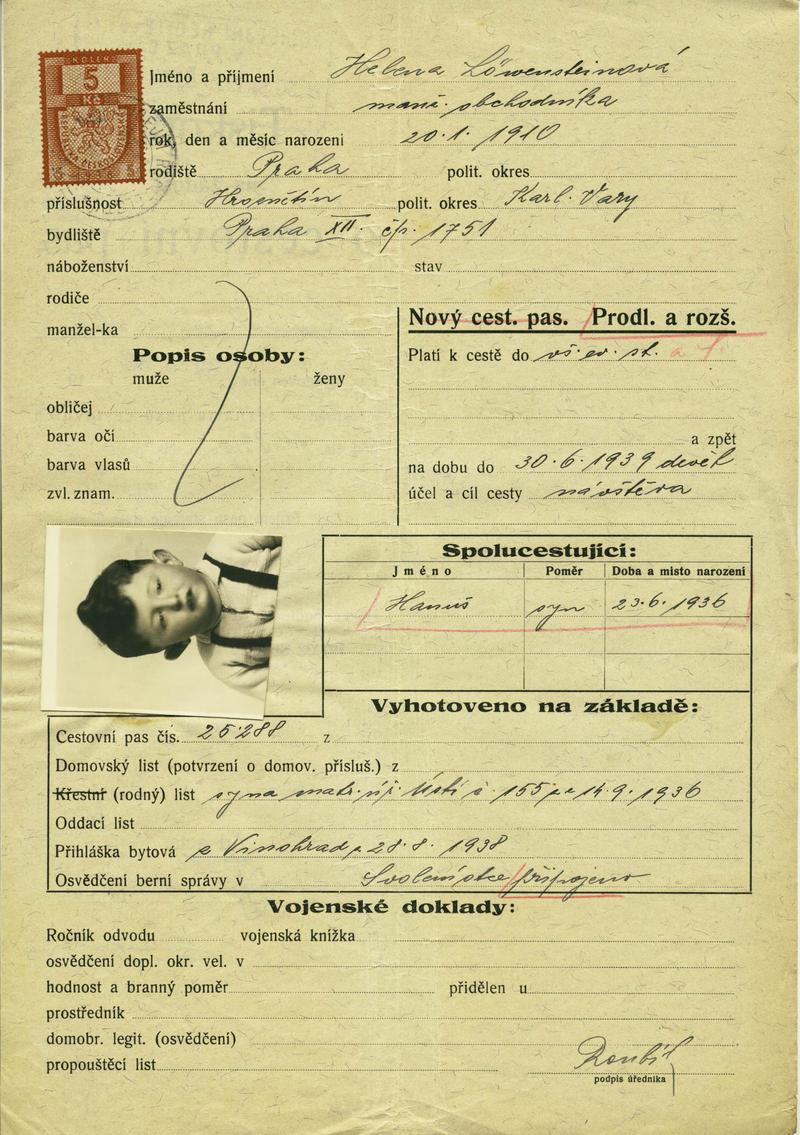 KOLEK
5
Kč
Jméno a příjmení Helena Löwensteinová
zaměstnání manž. obchodníka
rok, den a měsíc narozeni 20. 1. 1910
rodiště Praha polit. okres
příslušnost Hroznětín polit. okres Karl. Vary
bydliště Praha XII. čp. 1751
náboženství stav
rodiče
manžel-ka
Nový cest. pas. Prodl. a rozš.
Popis osoby:
muže ženy
Platí k cestě do vš. ev. st.
obličej
barva očí
a zpět
barva vlasů
na dobu do 30. 6. 1939 devět
zvl. znam.
účel a cíl cesty návštěva
Spolucestující:
Jméno Poměr Doba a místo narození
Hanuš syn 23. 6. 1936
Vyhotoveno na základě:
Cestovní pas čís. 25288 z
Domovský list (potvrzení o domov. přísluš.) z
Křestní (rodný) list syna matr. úř. Ústí č. 155 14. 9. 1936
Oddací list
Přihláška bytová z Vinohrad 28. 8. 1938
Osvědčení berní správy v připojeno
Vojenské doklady:
Ročník odvodu vojenská knížka
osvědčení dopl. okr. vel. v
hodnost a branný poměr přidělen u
prostředník
domobr. legit. (osvědčení)
propouštěcí list
podpis úředníka